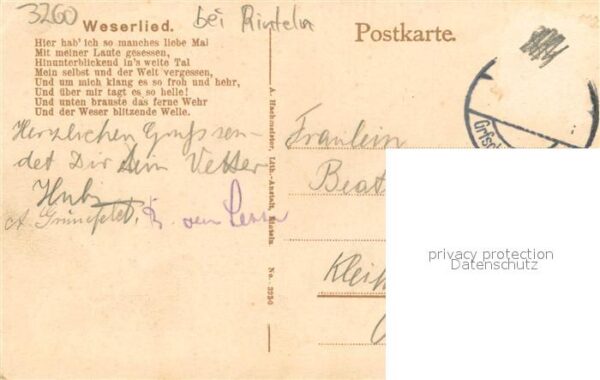 3260
bei Rinteln
Weserlied.
Hier hab' ich so manches liebe Mal
Mit meiner Laute gesessen,
Hinunterblickend in's weite Tal
Mein selbst und der Welt vergessen,
Und um mich klang es so froh und hehr,
Und über mir tagt es so helle!
Und unten brauste das ferne Wehr
Und der Weser blitzende Welle.
Herzlichen Gruß sen-
det Dir Dein Vetter
A. Grünefeld,
A. Hachmeister, Lith.-Anstalt, Rinteln No. 3250
Postkarte.
Fräulein
Beat
privacy protection
Datenschutz